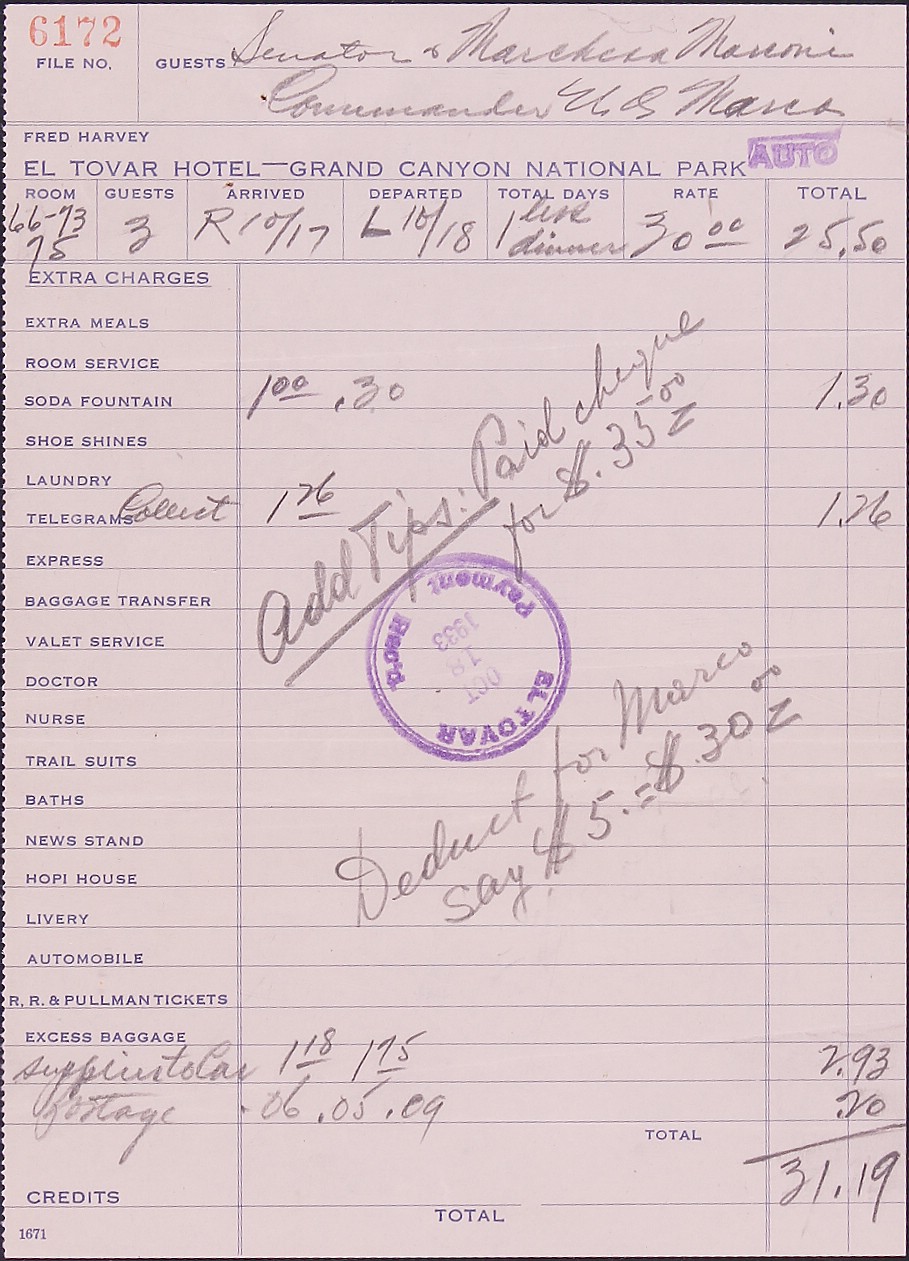 6172
FILE NO.
GUESTS Senator & Marchesa Marconi
Commander U G Marco
FRED HARVEY
EL TOVAR HOTEL—GRAND CANYON NATIONAL PARK AUTO
ROOM GUESTS ARRIVED DEPARTED TOTAL DAYS RATE TOTAL
66-73 3 R 10/17 L 10/18 1 less 30 00 25.50
75 dinner
EXTRA CHARGES
EXTRA MEALS
ROOM SERVICE
SODA FOUNTAIN 1 00 .30 1.30
SHOE SHINES
LAUNDRY
TELEGRAMS Collect 1 26 1.26
EXPRESS
BAGGAGE TRANSFER
VALET SERVICE
DOCTOR
NURSE
TRAIL SUITS
BATHS
NEWS STAND
HOPI HOUSE
LIVERY
AUTOMOBILE
R. R. & PULLMAN TICKETS
EXCESS BAGGAGE
supplies to Car 1 18 1 75 2.93
Postage .06 .05 .09 .20
TOTAL
31.19
CREDITS
TOTAL
1671
Add Tips: Paid cheque
for $.35 00
EL TOVAR
OCT
18
1933
Payment Rec'd
Deduct for Marco
say $5.= $.30 00